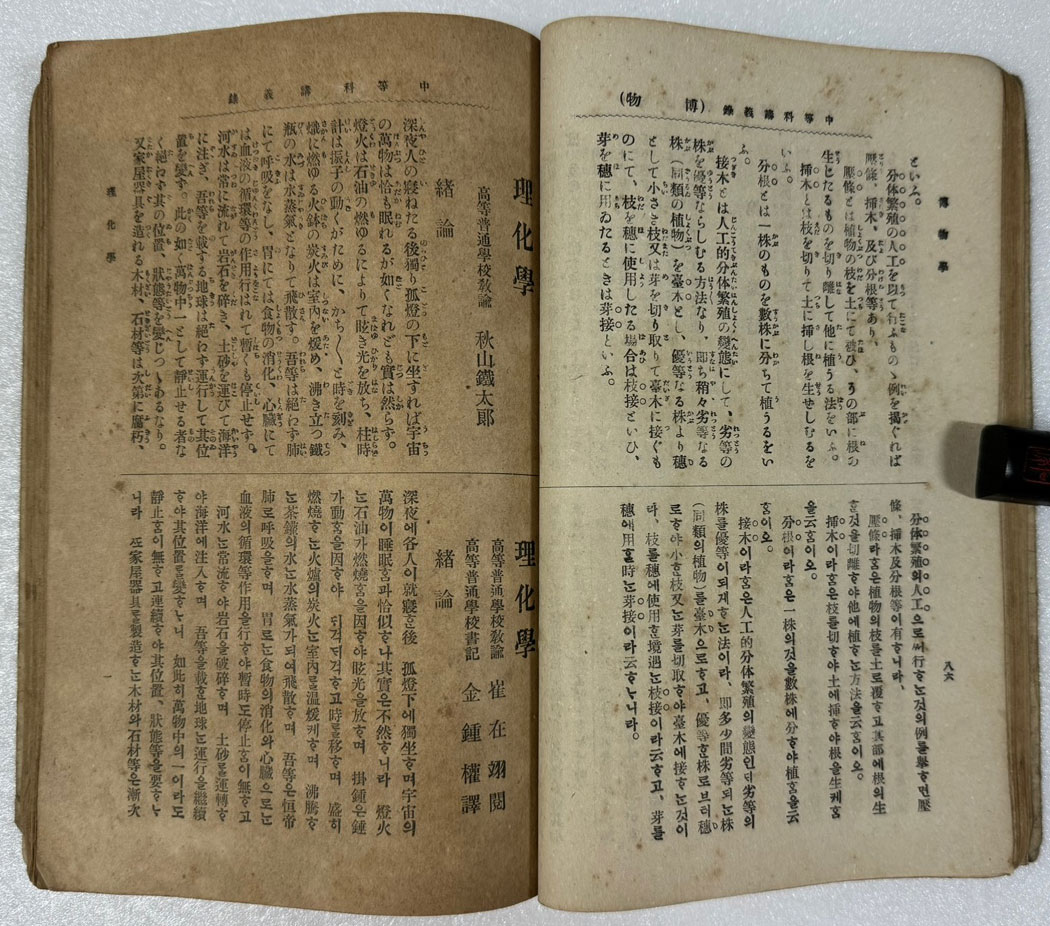 中等科講義錄 (博 物)
博物學
八六
といふ。
分体繁殖の人工を以て行ふものゝ例を揭ぐれば
壓條、挿木、及び分根等あり、
壓條とは植物の枝を土にて被ひ、その部に根の
生じたるものを切り離して他に植うる法をいふ。
挿木とは枝を切りて土に挿し根を生せしむるを
いふ。
分根とは一株のものを數株に分ちて植うるをい
ふ。
接木とは人工的分体繁殖の變態にして、劣等の
株を優等ならしむる方法なり、即ち稍々劣等なる
株(同類の植物)を臺木とし、優等なる株より穗
として小さき枝又は芽を切り取りて臺木に接ぐも
のにて、枝を穗に使用したる場合は枝接といひ、
芽を穗に用ゐたるときは芽接といふ。
分体繁殖의人工으로써行ᄒᆞᄂᆞᆫ것의例를擧ᄒᆞ면壓
條、挿木及分根等이有ᄒᆞ니라、
壓條라홈은植物의枝를土로覆ᄒᆞ고其部에根의生
ᄒᆞᆫ것을切離ᄒᆞ야他에植ᄒᆞᄂᆞᆫ方法을云홈이오。
挿木이라홈은枝를切ᄒᆞ야土에挿ᄒᆞ야根을生케홈
을云홈이오。
分根이라홈은一株의것을數株에分ᄒᆞ야植홈을云
홈이오。
接木이라홈은人工的分体繁殖의變態인ᄃᆡ劣等의
株를優等이되게ᄒᆞᄂᆞᆫ法이라、即多少間劣等되ᄂᆞᆫ株
(同類의植物)를臺木으로ᄒᆞ고、優等ᄒᆞᆫ株로브터穗
로ᄒᆞ야小ᄒᆞᆫ枝又ᄂᆞᆫ芽를切取ᄒᆞ야臺木에接ᄒᆞᄂᆞᆫ것이
라、枝를穗에使用ᄒᆞᆫ境遇ᄂᆞᆫ枝接이라云ᄒᆞ고、芽를
穗에用ᄒᆞᆯ時ᄂᆞᆫ芽接이라云ᄒᆞᄂᆞ니라。
中等科講義錄
理化學
高等普通學校敎諭 秋山鐵太郎
緒論
深夜人の寢ねたる後獨り孤燈の下に坐すれば宇宙
の萬物は恰も眠れるが如くなれども實は然らず。
燈火は石油の燃ゆるによりて眩き光を放ち、柱時
計は振子の動くがために、かち〱と時を刻み、
熾に燃ゆる火鉢の炭火は室內を煖め、沸き立つ鐵
瓶の水は水蒸氣となりて飛散す。吾等は絕わず肺
にて呼吸をなし、胃にては食物の消化、心臟にて
は血液の循環等の作用行はれて暫くも停止せず。
河水は常に流れて岩石を碎き、土砂を運びて海洋
に注ぎ、吾等を載する地球は絕わず運行して其位
置を變ず。此の如く萬物中一として靜止せる者な
く絕わず其の位置、狀態等を變じつゝあるなり。
又家屋器具を造れる木材、石材等は次第に腐朽、
理化學
高等普通學校敎諭 崔在翊閱
高等普通學校書記 金鍾權譯
緒論
深夜에各人이就寢ᄒᆞᆫ後 孤燈下에獨坐ᄒᆞ며宇宙의
萬物이睡眠홈과恰似ᄒᆞ나其實은不然ᄒᆞ니라 燈火
ᄂᆞᆫ石油가燃燒홈을因ᄒᆞ야眩光을放ᄒᆞ며 掛鍾은鍾
가動홈을因ᄒᆞ야 ᄃᆡ걱ᄃᆡ걱ᄒᆞ고時를移ᄒᆞ며 盛히
燃燒ᄒᆞᄂᆞᆫ火爐의炭火ᄂᆞᆫ室內를溫煖케ᄒᆞ며 沸騰ᄒᆞ
ᄂᆞᆫ茶鑵의水ᄂᆞᆫ水蒸氣가되여飛散ᄒᆞ며 吾等은恒常
肺로呼吸을ᄒᆞ며 胃로ᄂᆞᆫ食物의消化와心臟으로ᄂᆞᆫ
血液의循環等作用을行ᄒᆞ야暫時도停止홈이無ᄒᆞ고
河水ᄂᆞᆫ常流ᄒᆞ야岩石을破碎ᄒᆞ며 土砂를運轉ᄒᆞ
야海洋에注入ᄒᆞ며 吾等을載ᄒᆞᆫ地球ᄂᆞᆫ運行을繼續
ᄒᆞ야其位置를變ᄒᆞᄂᆞ니 如此히萬物中의一이라도
靜止홈이無ᄒᆞ고連續ᄒᆞ야其位置、狀態等을變ᄒᆞᄂᆞ
니라 ᄯᅩ家屋器具를製造ᄒᆞᄂᆞᆫ木材와石材等은漸次
理化學
一